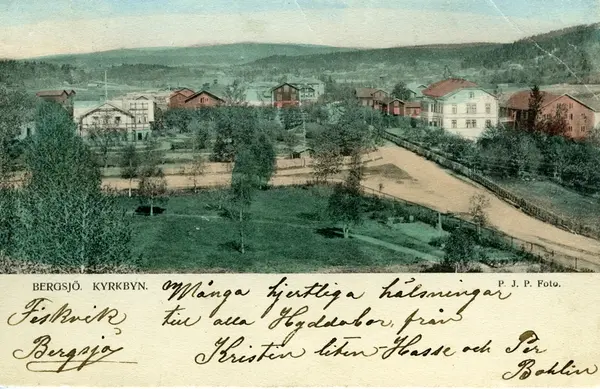 BERGSJÖ. KYRKBYN.
P. J. P. Foto.
Många hjertliga hälsningar
till alla Hyddabor, från
Kristin liten-Hasse och Per
Bohlin
Fiskvik
Bergsjö